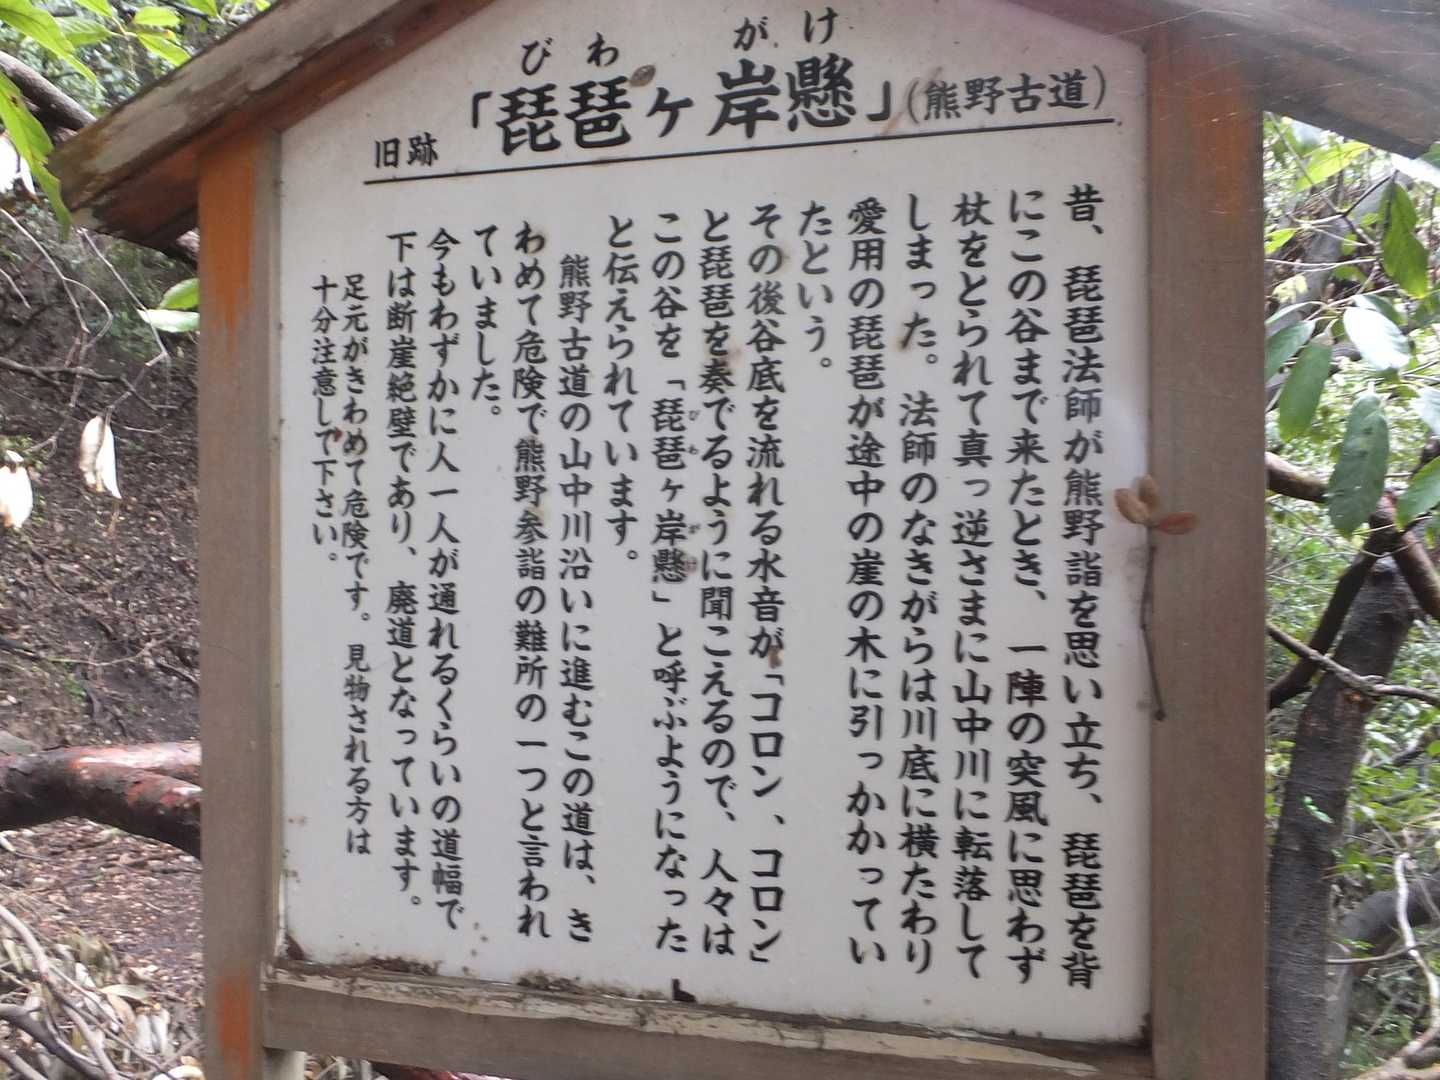 びわ　がけ
旧跡「琵琶ヶ岸懸」(熊野古道)
昔、琵琶法師が熊野詣を思い立ち、琵琶を背
にこの谷まで来たとき、一陣の突風に思わず
杖をとられて真っ逆さまに山中川に転落して
しまった。法師のなきがらは川底に横たわり
愛用の琵琶が途中の崖の木に引っかかってい
たという。
その後谷底を流れる水音が「コロン、コロン」
と琵琶を奏でるように聞こえるので、人々は
この谷を「琵琶ヶ岸懸」と呼ぶようになった
びわ　がけ
と伝えられています。
熊野古道の山中川沿いに進むこの道は、き
わめて危険で熊野参詣の難所の一つと言われ
ていました。
今もわずかに人一人が通れるくらいの道幅で
下は断崖絶壁であり、廃道となっています。
足元がきわめて危険です。見物される方は
十分注意して下さい。